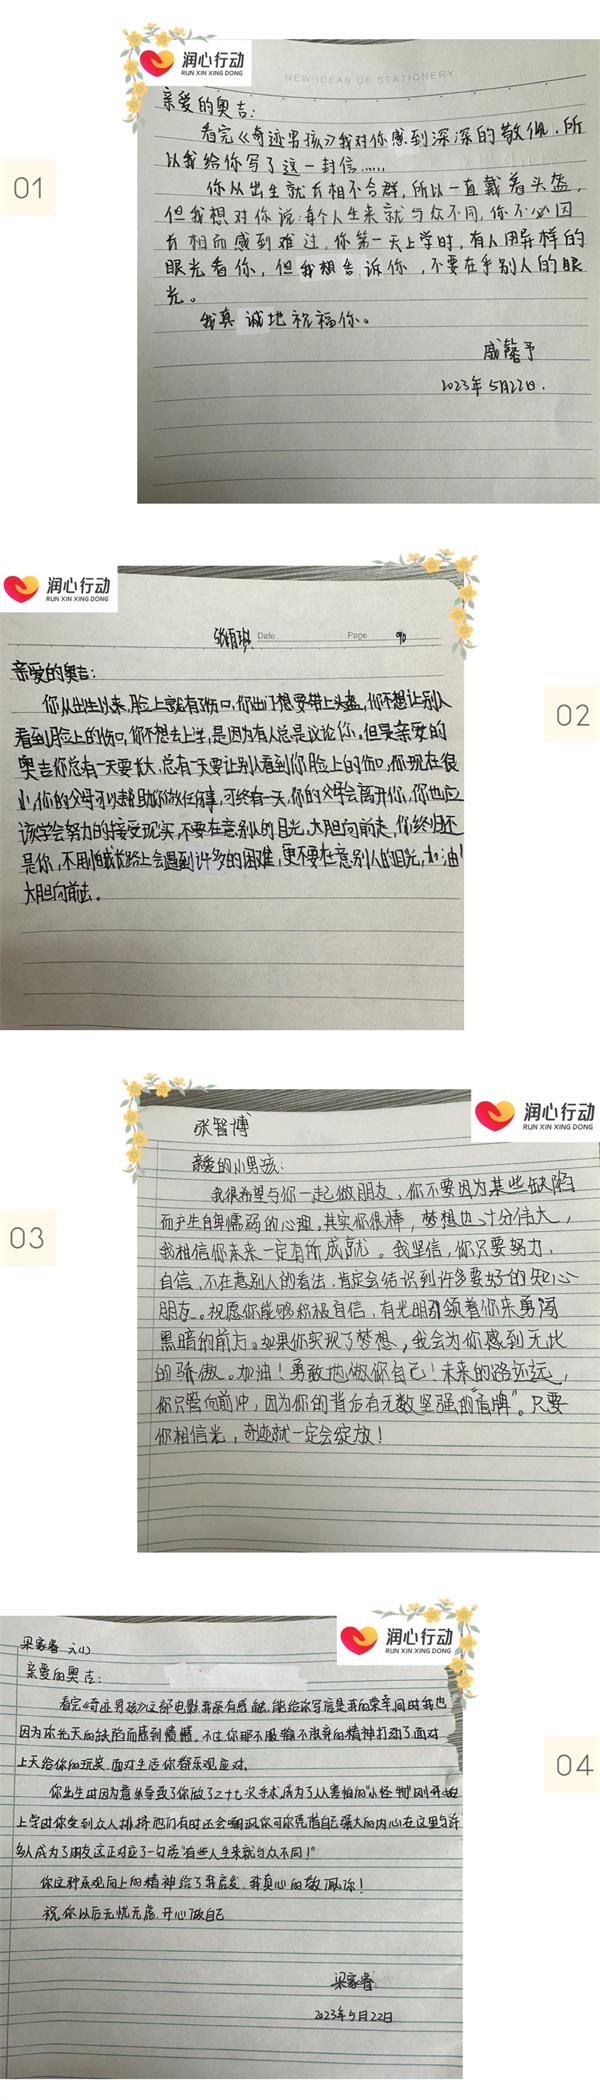 润心行动
RUN XIN XING DONG
NEW IDEAS OF STATIONERY
01
亲爱的奥吉：
看完《奇迹男孩》我对你感到深深的敬佩，所
以我给你写了这一封信……
你从出生就长相不合群，所以一直戴着头盔，
但我想对你说：每个人生来就与众不同，你不必因
长相而感到难过，你第一天上学时，有人用异样的
眼光看你，但我想告诉你，不要在乎别人的眼
光。
我真诚地祝福你。
戚馨予
2023年5月22日.
润心行动
RUN XIN XING DONG
Date
Page 90
02
亲爱的奥吉：
你从出生以来，脸上就有伤口，你出门想要带上头盔，你不想让别人
看到脸上的伤口，你不想去上学，是因为有人总是议论你。但是亲爱的
奥吉你总有一天要长大，总有一天要让别人看到你脸上的伤口，你现在很
小，你的父母可以帮助你做任何事，可终有一天，你的父母会离开你，你也应
该学会努力的接受现实，不要在意别人的目光，大胆向前走，你终归还
是你，不用怕成长路上会遇到许多的困难，更不要在意别人的目光，加油！
大胆向前去。
润心行动
RUN XIN XING DONG
03
张智博
亲爱的小男孩：
我很希望与你一起做朋友，你不要因为某些缺陷
而产生自卑懦弱的心理，其实你很棒，梦想也十分伟大，
我相信你未来一定有所成就。我坚信，你只要努力、
自信，不在意别人的看法，肯定会结识到许多要好的知心
朋友。祝愿你能够积极自信，有光明引领着你来勇闯
黑暗的前方。如果你实现了梦想，我会为你感到无比
的骄傲。加油！勇敢地做你自己！未来的路还远，
你只管向前冲，因为你的背后有无数坚强的“盾牌”。只要
你相信光，奇迹就一定会绽放！
润心行动
RUN XIN XING DONG
04
梁家睿 六(1)
亲爱的奥吉：
看完《奇迹男孩》这部电影我深有感触，能给你写信是我的荣幸，同时我也
因为你先天的缺陷而感到惋惜。不过你那不服输不放弃的精神打动了面对
上天给你的玩笑，面对生活你都乐观应对、
你出生时因为意外导致了你做了二十七次手术，成为了人人害怕的“小怪物”刚开始
上学时你受到众人排挤他们有时还会嘲讽你可你凭借自己强大的内心在这里与许
多人成为了朋友这正对应了一句话“有些人生来就与众不同！”
你这种乐观向上的精神给了我启发，我真心的敬佩你！
祝你以后无忧无虑，开心做自己
梁家睿
2023年5月22日